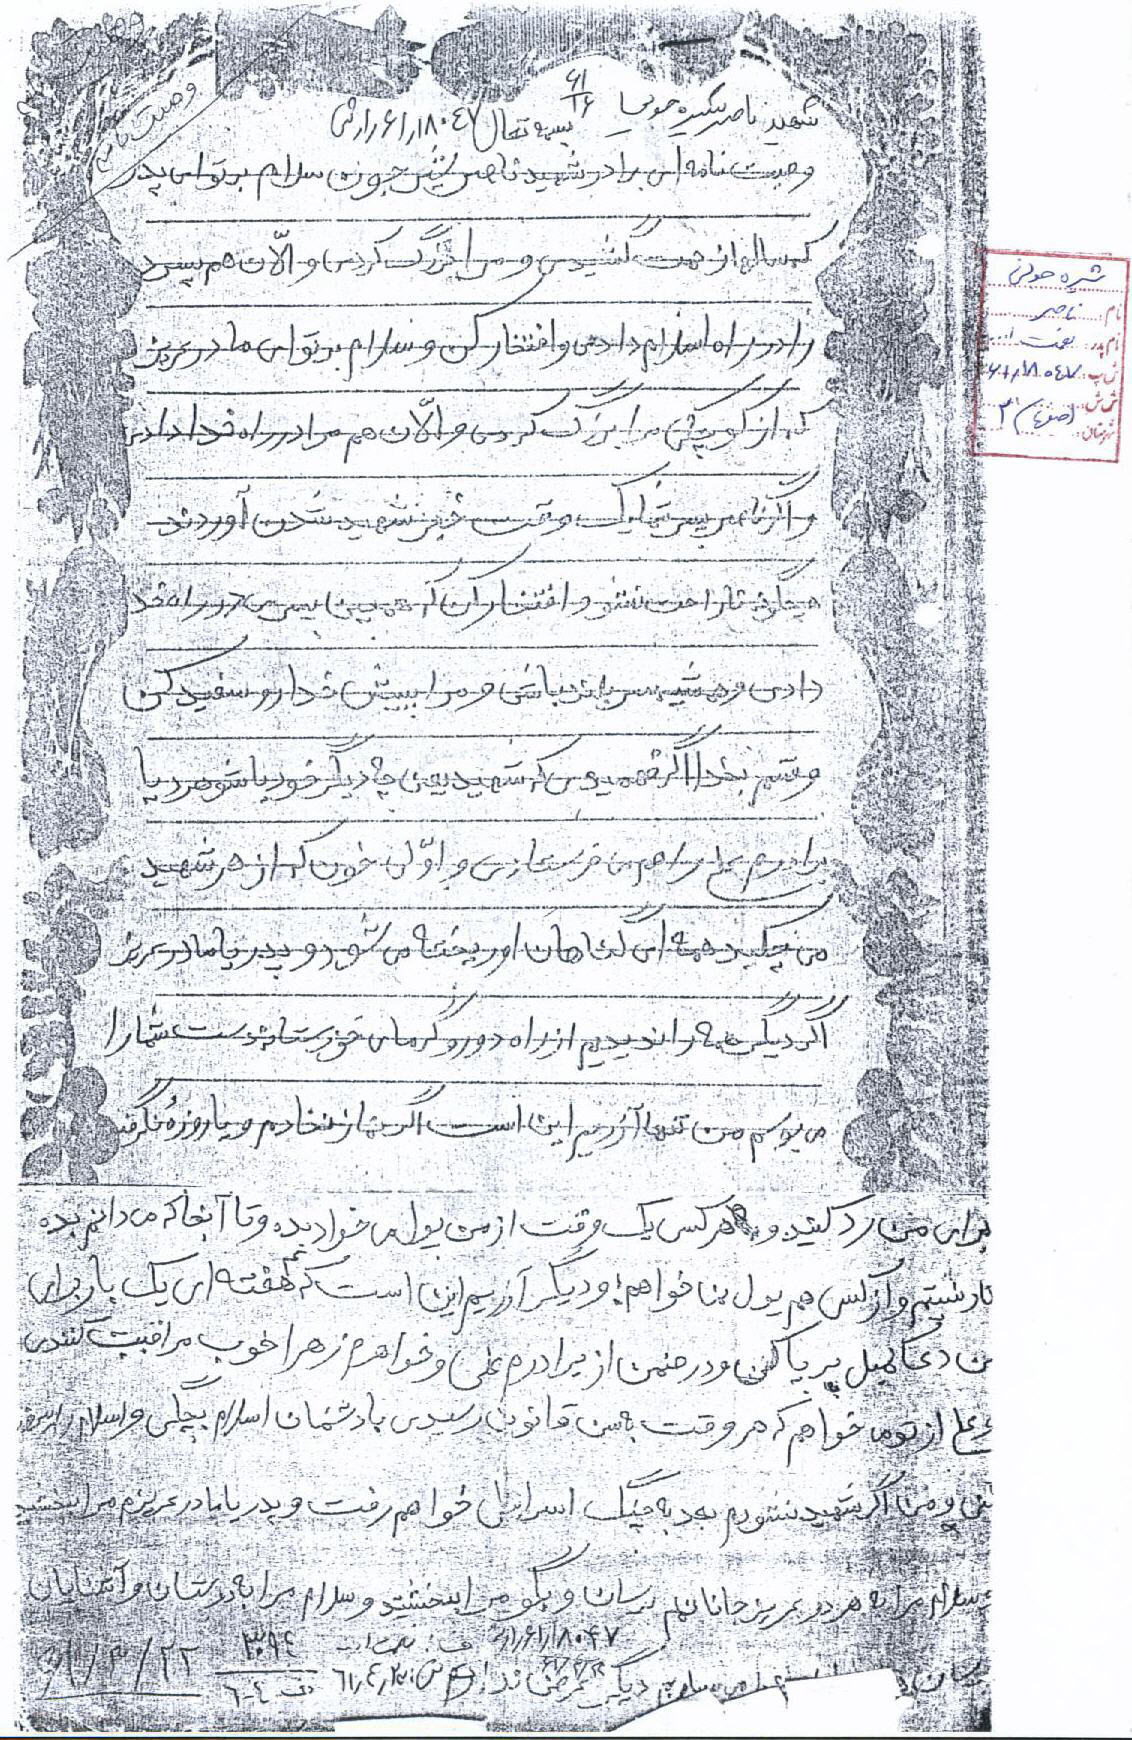 وصیت نامه
شهید ناصر
بسمه تعالی
وصیت نامه ای برادر شهید ناصر سلام بر تو ای پدر
که سالها زحمت کشیدی و مرا بزرگ کردی و الّان هم پسرت
را در راه اسلام دادی و افتخار کن و سلام بر تو ای مادر عزیز
که از کوچکی مرا بزرگ کردی و الّان هم مرا در راه خدا دادی
و اگر نامه پسر شما یک وقت خبر شهید شدن آوردند
هیچگونه ناراحت نشو و افتخار کن که همچین پسری در راه خدا
دادی و همیشه سر بلند باشی و مرا پیش خدا رو سفید کن
و قسم بخدا اگر فهمیدی که شهید یعنی چه دیگر خود با شوهر و یا
برادرم علی را هم می فرستادی و اوّلین خون که از هر شهید
می چکید همه ای گناهان او ریخته می شود و پدر یا مادر عزیز
اگر دیگر همه را ندیدیم از راه دور و گرمای خوزستان دست شما را
می بوسم من تنها آرزیم این است اگر نماز نخوادم و یا روزه نگرفتم
برای من رد کنید و هر کس یک وقت از من پول می خواد بده و تا آنجا که می دانم بده
نارشتیم و از کس هم پول نمی خواهم و دیگر آرزیم این است که هفته ای یک بار برای
من دعا کمیل بر پا کن و در ضمن از برادرم علی و خواهرم زهرا خوب مراقبت کنندی
علی از تو می خواهم که هر وقت به سن قانونی رسیدی با دشمنان اسلام بجنگی و اسلام را
کنی و من اگر شهید نشوم بعد به جنگ اسرایل خواهم رفت و پدر یا مادر عزیزم مرا ببخشید
سلام مرا به هر دو عزیز جانانم برسان و بگو مرا ببخشید و سلام مرا به دوستان و آشنایان
برسان دیگر عرضی ندارم
۶۱/۳/۲۲
شیره جونی
نام: ناصر
نام پدر: نعمت ا...
ش پ:
ش ش: ۳
شهرستان: اصفهان